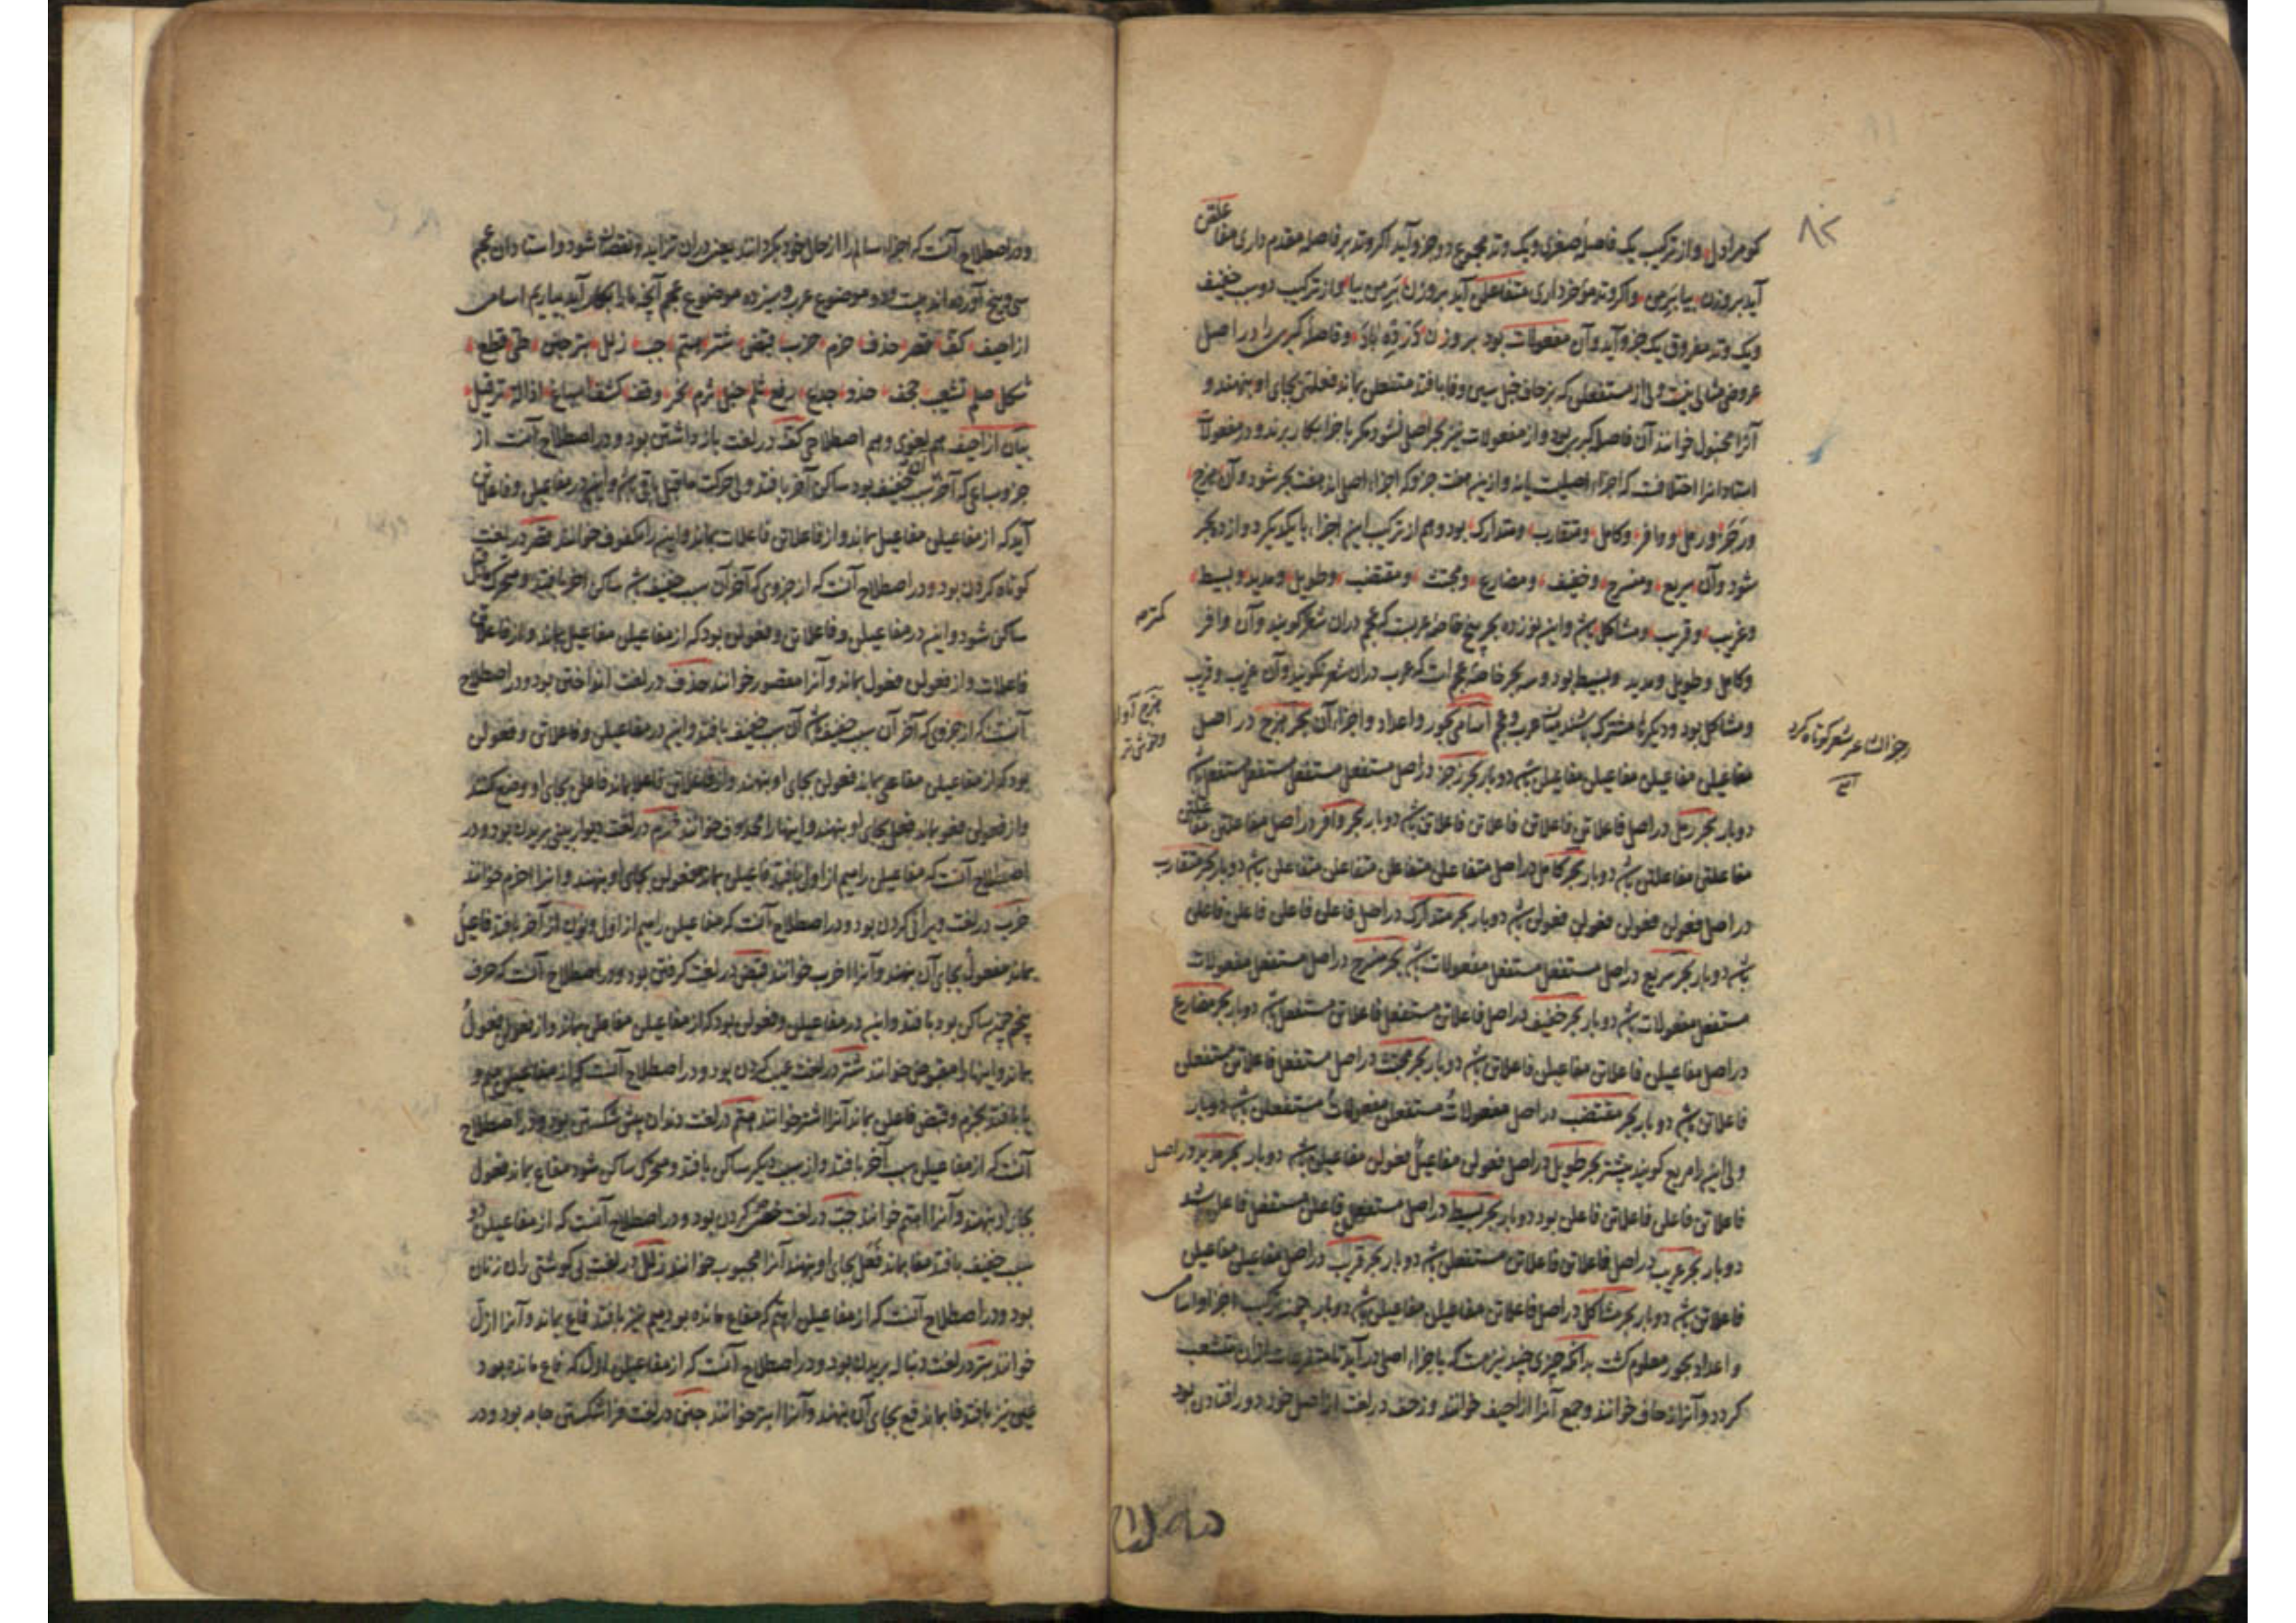 ۸۲
کوهر اول و از ترکیب یک فاصله صغری و یک وتد مجموع دو جزو آید اگر وتد بر فاصله مقدم داری مفاعلتن
آید بروزن و اگر وتد مؤخر داری متفاعلن آید بروزن از ترکیب دو سبب خفیف
و یک وتد مفروق یک جزو آید و آن مفعولات بود بروزن و فاصله کبری را در اصل
عروض مثالی نیست ولی از مستفعلن که بزحاف خبل سین و فا بافتد متعلن بماند فعلتن بجای او بنهند و
آنرا مخبول خوانند آن فاصله کبری بود و از مفعولات نیز بحر اصل نشود مگر با جزا بکار برند و در مفعولات
استادانرا اختلافست که اجزاء اصلیست یا نه و ازین هفت جزو که اجزاء اصل اند هفت بحر شود و آن هزج
و رجز و رمل و وافر و کامل و متقارب و متدارک بود و هم از ترکیب این اجزاء با یکدیگر دوازده بحر
شود و آن سریع و منسرح و خفیف و مضارع و مجتث و مقتضب و طویل و مدید و بسیط
و غریب و قریب و مشاکل باشد و این نوزده بحر پنج خاصه عربست که عجم دران شعر کمتر گویند و آن وافر
و کامل و طویل و مدید و بسیط بود و سه بحر خاصه عجم است که عرب دران شعر نگویند و آن غریب و قریب
و مشاکل بود و دیگرها مشترک باشند میان عرب و عجم اسامی بحور و اعداد و اجزاء آن بحر هزج در اصل
مفاعیلن مفاعیلن مفاعیلن مفاعیلن باشد دو بار بحر رجز در اصل مستفعلن مستفعلن مستفعلن مستفعلن باشد
دو بار بحر رمل در اصل فاعلاتن فاعلاتن فاعلاتن فاعلاتن باشد دو بار بحر وافر در اصل مفاعلتن مفاعلتن
مفاعلتن مفاعلتن باشد دو بار بحر کامل در اصل متفاعلن متفاعلن متفاعلن متفاعلن باشد دو بار بحر متقارب
در اصل فعولن فعولن فعولن فعولن باشد دو بار بحر متدارک در اصل فاعلن فاعلن فاعلن فاعلن
باشد دو بار بحر سریع در اصل مستفعلن مستفعلن مفعولات باشد بحر منسرح در اصل مستفعلن مفعولات
مستفعلن مفعولات باشد دو بار بحر خفیف در اصل فاعلاتن مستفعلن فاعلاتن مستفعلن باشد دو بار بحر مضارع
در اصل مفاعیلن فاعلاتن مفاعیلن فاعلاتن باشد دو بار بحر مجتث در اصل مستفعلن فاعلاتن مستفعلن
فاعلاتن باشد دو بار بحر مقتضب در اصل مفعولات مستفعلن مفعولات مستفعلن باشد دو بار
ولی این را مربع گویند بیشتر بحر طویل در اصل فعولن مفاعیلن فعولن مفاعیلن باشد دو بار بحر مدید در اصل
فاعلاتن فاعلن فاعلاتن فاعلن بود دو بار بحر بسیط در اصل مستفعلن فاعلن مستفعلن فاعلن باشد
دو بار بحر غریب در اصل فاعلاتن فاعلاتن مستفعلن باشد دو بار بحر قریب در اصل مفاعیلن مفاعیلن
فاعلاتن باشد دو بار بحر مشاکل در اصل فاعلاتن مفاعیلن مفاعیلن باشد دو بار چون ترکیب اجزا و اسامی
و اعداد بحور معلوم گشت بدانکه چیزی چند نیز هست که باجزاء اصل در آید تا متفرعات ازان منشعب
گردد و آنرا زحاف خوانند و جمع آنرا ازاحیف خوانند و زحف در لغت از اصل خود دور افتادن بود
و در اصطلاح آنست که اجزاء سالم را از حال خود بگردانند یعنی دران تزاید و نقصان شود رواست و آن عجم
سی و پنج آورده اند بیست و دو موضوع عرب و سیزده موضوع عجم آنچه ما را بکار آید بیاریم اسامی
ازاحیف کف قصر حذف خرم خرب قبض شتر هتم جب زلل بتر خبن طی قطع
شکل صلم تشعیث جحف حذذ جدع رفع ثلم خبل ثرم نحر وقف کشف اسباغ اذاله ترفیل
بیان ازاحیف هم لغوی و هم اصطلاحی کف در لغت باز داشتن بود و در اصطلاح آنست از
جزو سباعی که آخرش سبب خفیف بود ساکن آخر بافتد و حرکت ماقبل باقی باشد و این در مفاعیلن و فاعلاتن
آید که از مفاعیلن مفاعیل بماند و از فاعلاتن فاعلات بماند و این را مکفوف خوانند قصر در لغت
کوتاه کردن بود و در اصطلاح آنست که از جزوی که آخر آن سبب خفیف باشد ساکن آخر بافتد و متحرک ماقبل
ساکن شود و این در مفاعیلن و فاعلاتن و فعولن بود که از مفاعیلن مفاعیل بماند و از فاعلاتن
فاعلات و از فعولن فعول بماند و آنرا مقصور خوانند حذف در لغت انداختن بود و در اصطلاح
آنست که از جزوی که آخر آن سبب خفیف باشد آن سبب خفیف بافتد و این در مفاعیلن و فاعلاتن و فعولن
بود که از مفاعیلن مفاعی بماند فعولن بجای او بنهند و از فاعلاتن فاعلا بماند فاعلن بجای او وضع کنند
و از فعولن فعو بماند فعل بجای او بنهند و اینها را محذوف خوانند خرم در لغت دیوار بینی بریدن بود و در
اصطلاح آنست که مفاعیلن را میم از اول بافتد فاعیلن بماند مفعولن بجای او بنهند و آنرا اخرم خوانند
خرب در لغت ویرانی کردن بود و در اصطلاح آنست که مفاعیلن را میم از اول و نون از آخر بافتد فاعیل
بماند مفعول بجای آن بنهند و آنرا اخرب خوانند قبض در لغت گرفتن بود و در اصطلاح آنست که حرف
پنجم چون ساکن بود بافتد و این در مفاعیلن و فعولن بود که از مفاعیلن مفاعلن بماند و از فعولن فعول
بماند و اینها را مقبوض خوانند شتر در لغت عیب کردن بود و در اصطلاح آنست که از مفاعیلن میم و
یا بافتد بخرم و قبض فاعلن بماند آنرا اشتر خوانند هتم در لغت دندان پیش شکستن بود و در اصطلاح
آنست که از مفاعیلن سبب آخر بافتد و از سبب دیگر ساکن بافتد و متحرک ساکن شود مفاع بماند فعول
بجای او بنهند و آنرا اهتم خوانند جب در لغت خصی کردن بود و در اصطلاح آنست که از مفاعیلن دو
سبب خفیف بافتد مفا بماند فعل بجای او بنهند آنرا مجبوب خوانند زلل در لغت بی گوشتی ران زنان
بود و در اصطلاح آنست که از مفاعیلن اهتم که مفاع مانده بود میم نیز بافتد فاع بماند و آنرا ازل
خوانند بتر در لغت دنباله بریدن بود و در اصطلاح آنست که از مفاعیلن ازل که فاع مانده بود
عین نیز بافتد فا بماند فع بجای آن بنهند و آنرا ابتر خوانند خبن در لغت فرا شکستن جامه بود و در